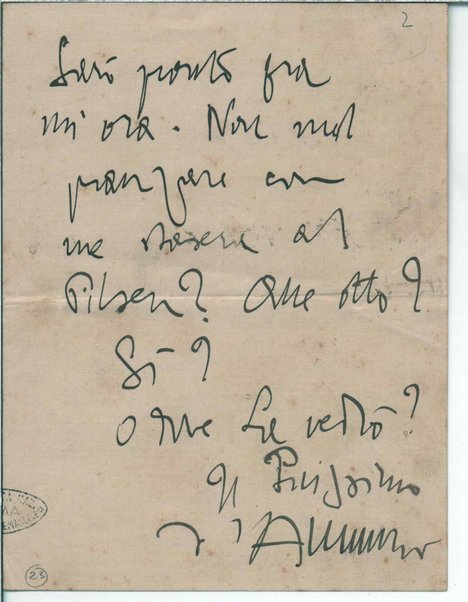 2
Sarò pronto fra
un'ora. Non vuol
pranzare con
me stasera al
Pilsen? Alle otto?
Sì?
O dove La vedrò?
Il
d'Annunzio
23